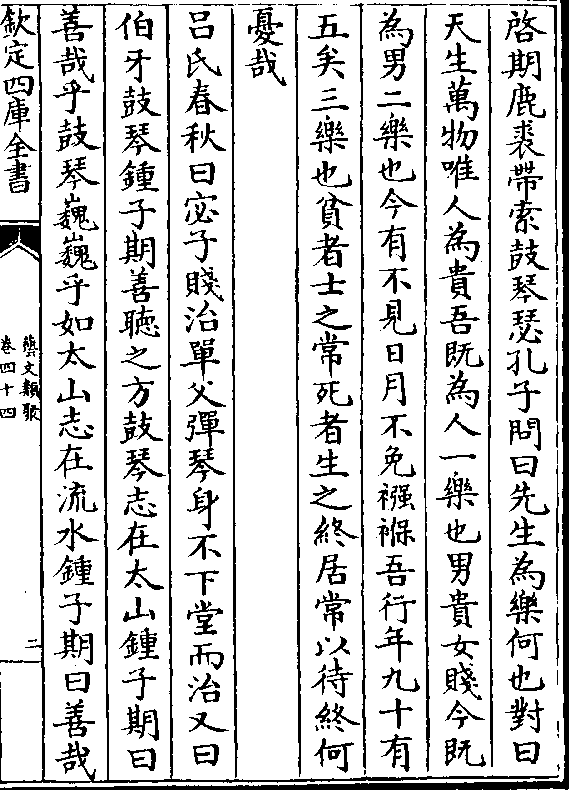 啓期鹿裘帶索鼓琴瑟孔子問曰先生為樂何也對曰
天生萬物唯人為貴吾既為人一樂也男貴女賤今既
為男二樂也今有不見日月不免襁褓吾行年九十有
五矣三樂也貧者士之常死者生之終居常以待終何
憂哉
吕氏春秋曰宓子賤治單父彈琴身不下堂而治又曰
伯牙鼓琴鍾子期善聽之方鼓琴志在太山鍾子期曰
善哉乎鼓琴巍巍乎如太山志在流水鍾子期曰善哉
欽定四庫全書
藝文類聚
卷四十四
二